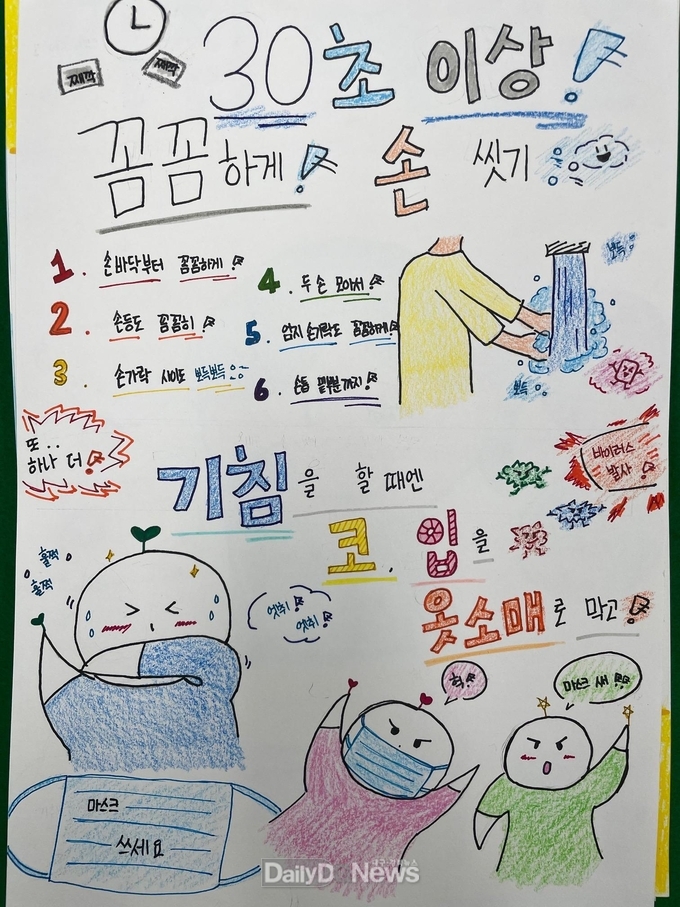 째깍 째깍
30초 이상!
꼼꼼하게! 손 씻기
1. 손바닥부터 꼼꼼하게!
2. 손등도 꼼꼼히!
3. 손가락 사이도 뽀득뽀득
4. 두 손 모아서!
5. 엄지 손가락도 꼼꼼하게!
6. 손톱 밑부분까지!
뽀득
뽀득
또..
하나 더!
기침을 할 때엔
코. 입을
옷소매로 막고!
바이러스
발사!
훌쩍
훌쩍
엣취!
엣취!
헉!!
마스크 써!!
마스크
쓰세요
대구·경북뉴스
DailyD News